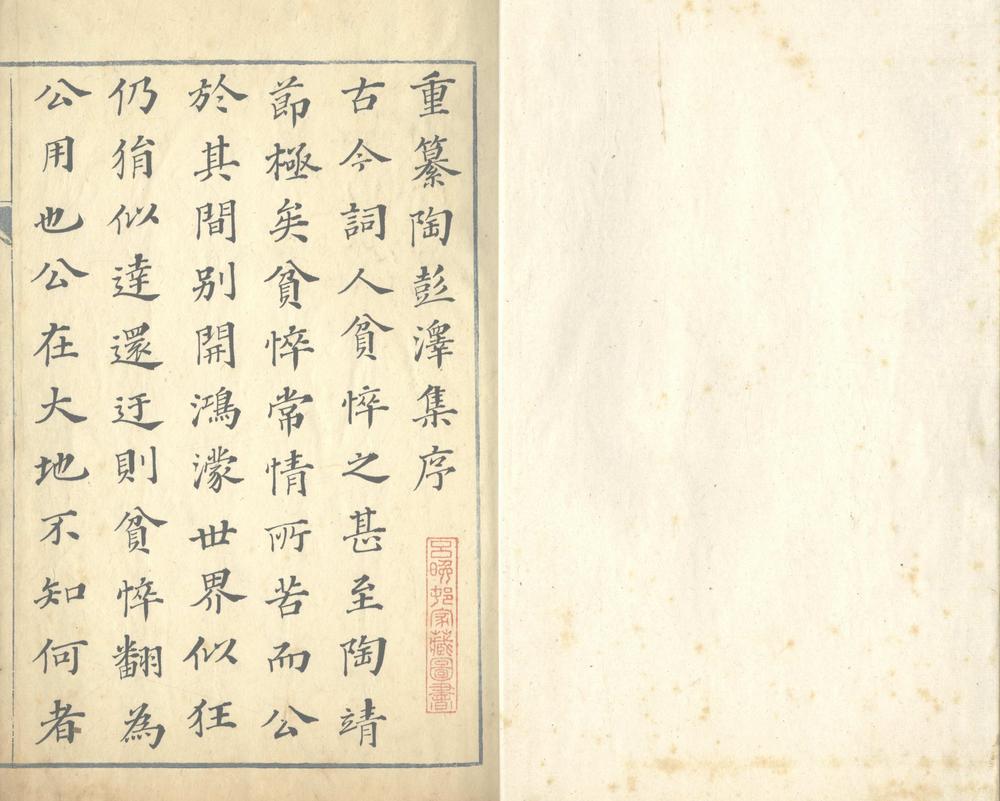 重纂陶彭澤集序
呂晚邨家藏圖書
古今詞人貧悴之甚至陶靖
節極矣貧悴常情所苦而公
於其間別開鴻濛世界似狂
仍狷似達還迂則貧悴翻為
公用也公在大地不知何者